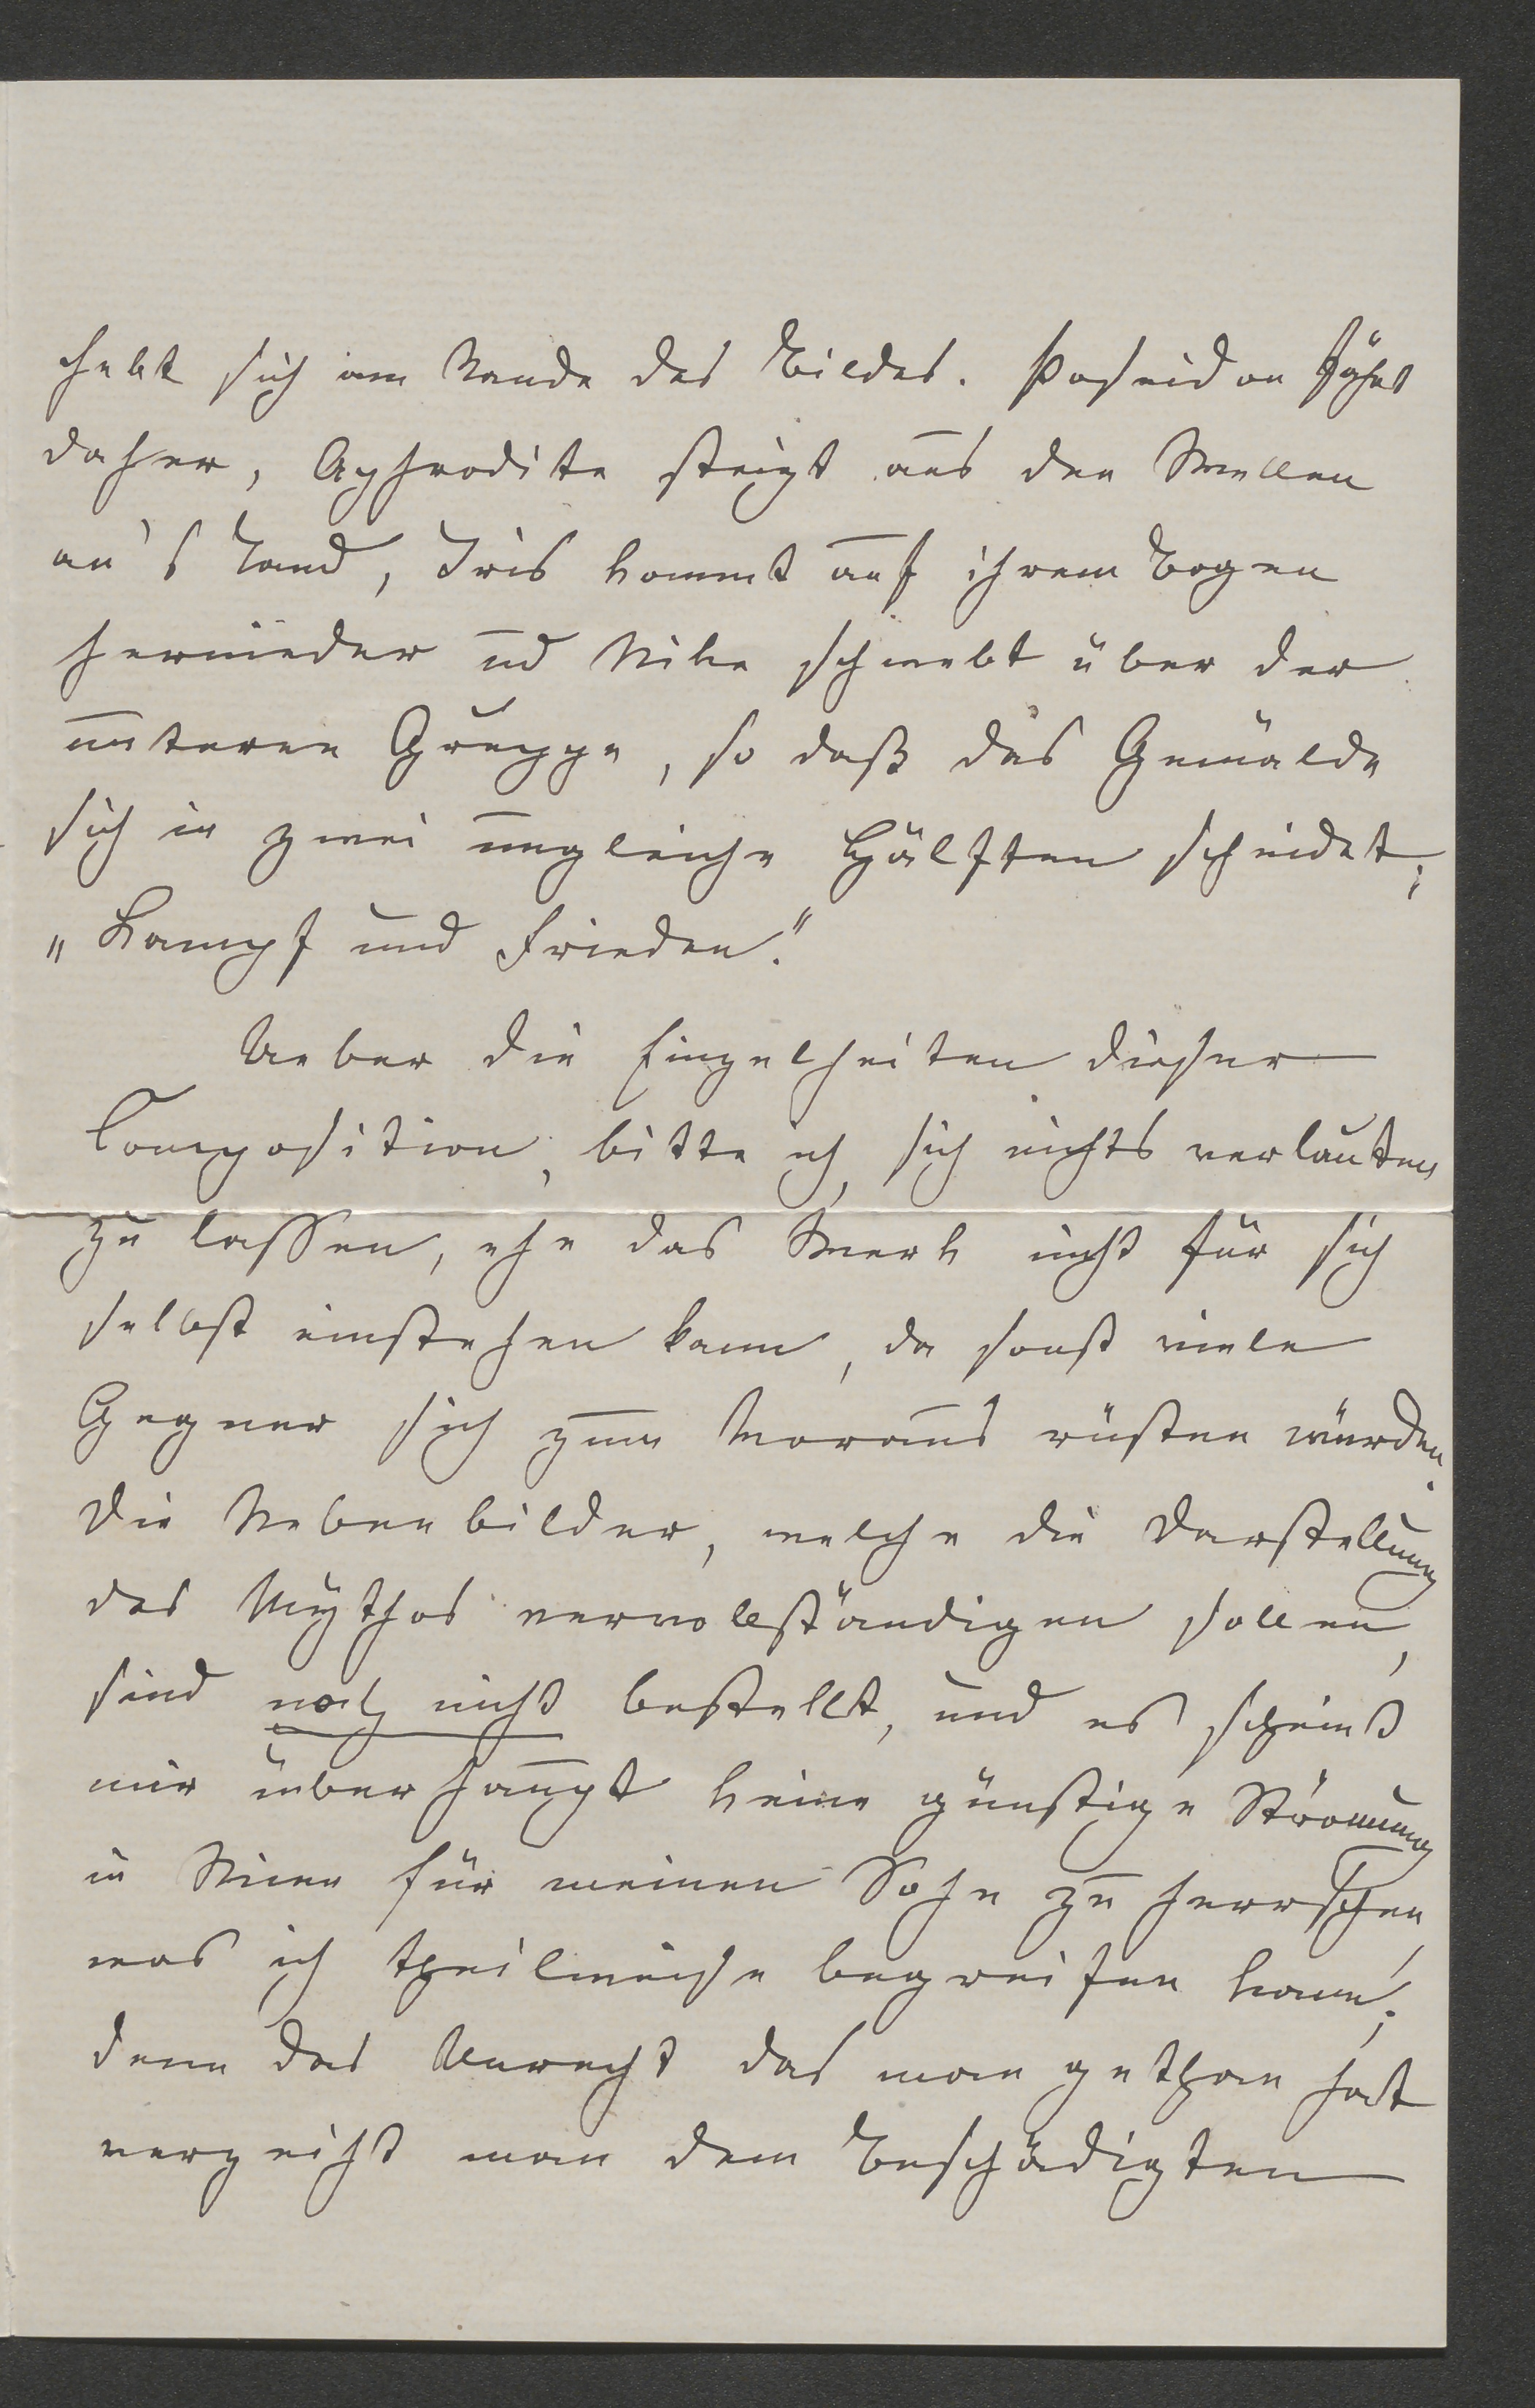 hebt sich am Rande des Bildes. Poseidon fährt
daher, Aphrodite steigt aus den Wellen
an's Land, Iris kommt auf ihrem Bogen
hernieder ud Nike schwebt über der
unteren Gruppe, so daß das Gemälde
sich in zwei ungleiche Hälften scheidet;
„Kampf und Frieden."
Ueber die Einzelheiten dieser
Composition, bitte ich, sich nichts verlauten
zu lassen, ehe das Werk nicht für sich
selbst einstehen kann, da sonst viele
Gegner sich zum Voraus rüsten würden.
Die Nebenbilder, welche die Darstellung
des Mythos vervollständigen sollen,
sind noch nicht bestellt, und es scheint
mir überhaupt keine günstige Strömung
in Wien für meinen Sohn zu herrschen,
was ich theilweise begreifen kann;
denn das Unrecht das man gethan hat
verzeiht man dem Beschädigten